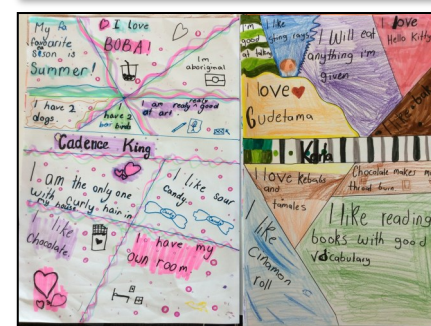 My fa
favourite
season is
Summer!
I love
BOBA!
Im
aboriginal
I have 2
dogs.
I
have 2
birds
I am realy really good
at art.
Cadence King
I am the only one
with curly hair in
my house
I like sour
Candy
I like
Chocolate
I have my
own room
I'm
good
at
I like
sting rays
I Will eat
anything i'm
given
I love
Hello Kitty
I love
Gudetama
Karla
I love Kebabs
and
tamales
Chocolate makes m
throat bure
I like reading
books with good
vocabulary
I like
Cinnamon
roll